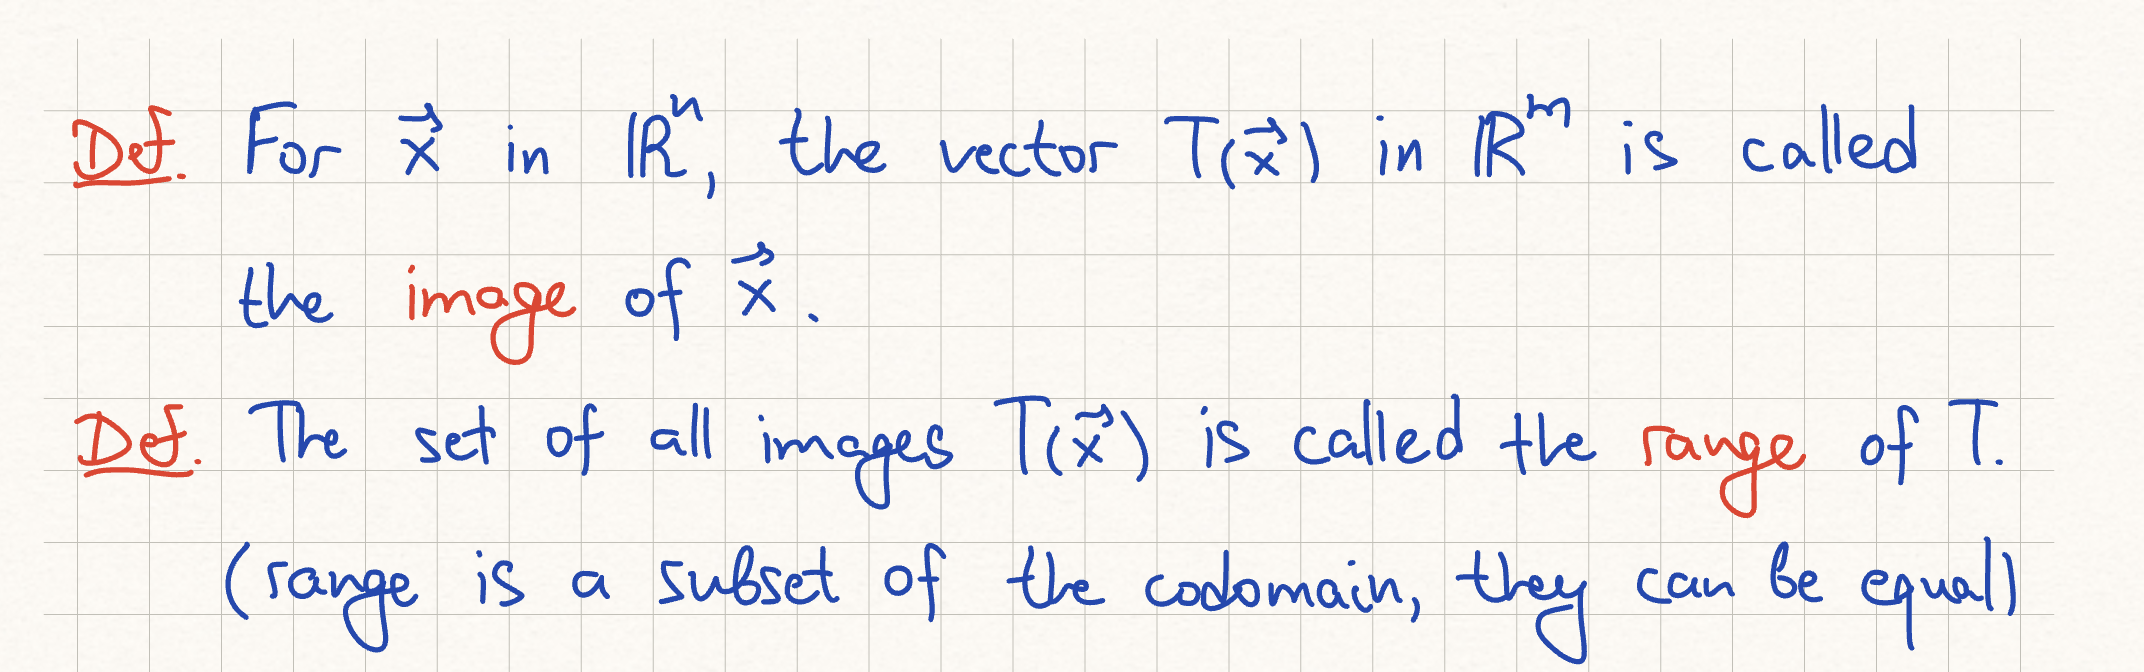 Def. For x⃗ in ℝⁿ, the vector T(x⃗) in ℝᵐ is called
the image of x⃗.
Def. The set of all images T(x⃗) is called the range of T.
(range is a subset of the codomain, they can be equal)